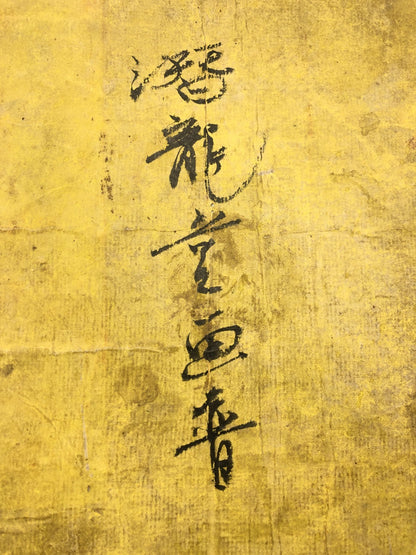 潜龍堂画譜